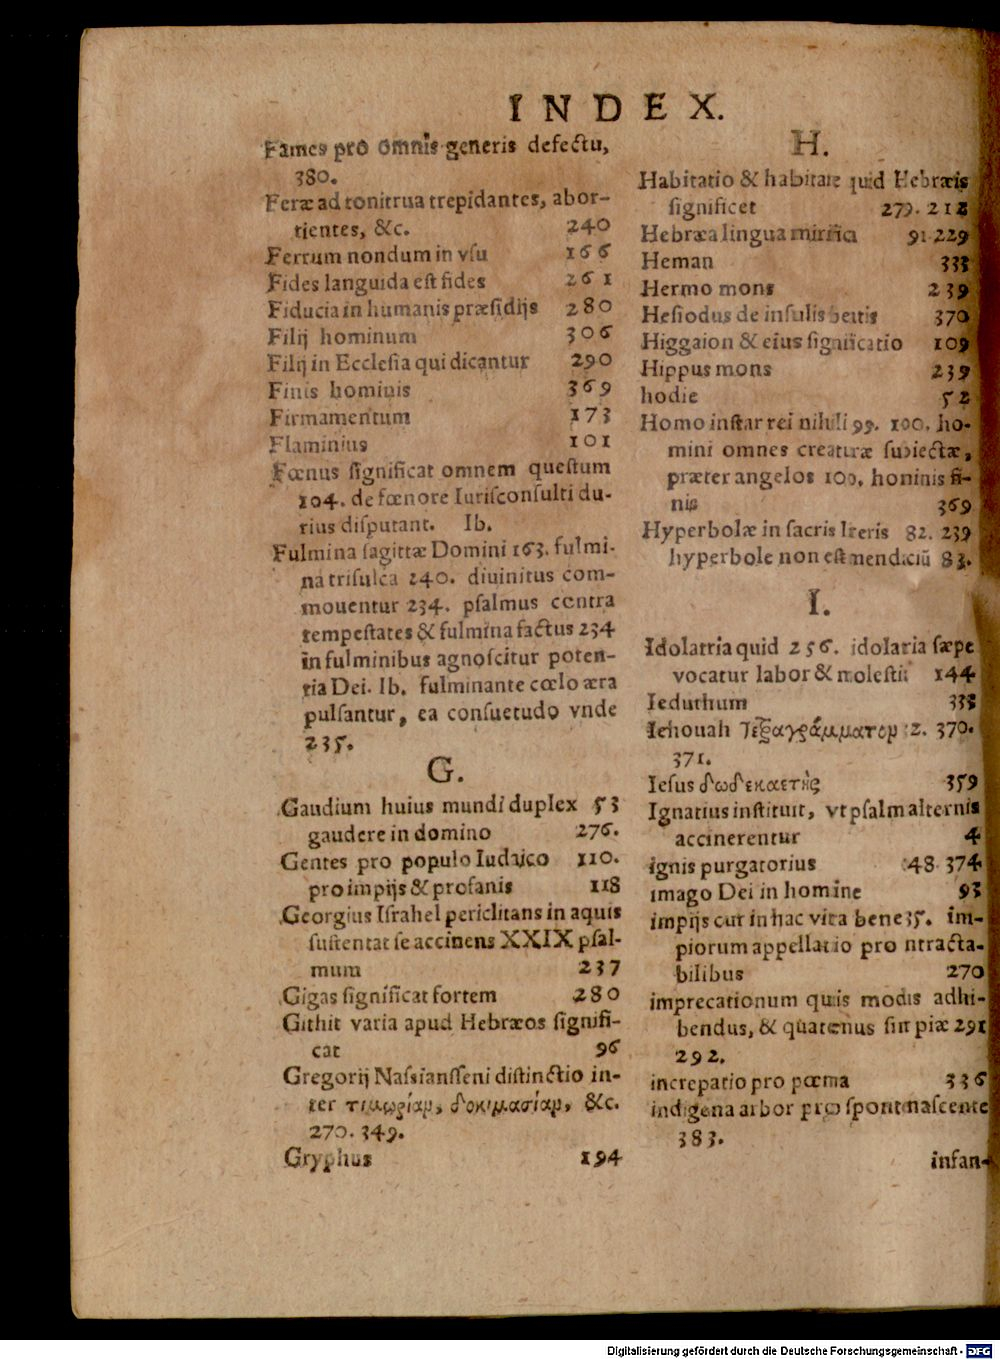 INDEX.
Fames pro omnis generis defectu,
380.
Feræ ad tonitrua trepidantes, abor-
tientes, &c. 240
Ferrum nondum in vſu 166
Fides languida eſt fides 261
Fiducia in humanis præſidijs 280
Filij hominum 306
Filij in Eccleſia qui dicantur 290
Finis hominis 369
Firmamentum 173
Flaminius 101
Fœnus ſignificat omnem queſtum
104. de fœnore Iuriſconſulti du-
rius diſputant. Ib.
Fulmina ſagittæ Domini 163. fulmi-
na triſulca 240. diuinitus com-
mouentur 234. pſalmus contra
tempeſtates & fulmina factus 234
in fulminibus agnoſcitur poten-
tia Dei. Ib. fulminante cœlo æra
pulſantur, ea conſuetudo vnde
235.
G.
Gaudium huius mundi duplex 53
gaudere in domino 276.
Gentes pro populo Iudaico 110.
pro impijs & profanis 118
Georgius Iſrahel periclitans in aquis
ſuſtentat ſe accinens XXIX pſal-
mum 237
Gigas ſignificat fortem 280
Githit varia apud Hebræos ſignifi-
cat 96
Gregorij Naſsianſſeni diſtinctio in-
ter τιμωρίαμ, δοκιμασίαμ, &c.
270. 349.
Gryphus 194
H.
Habitatio & habitare quid Hebræis
ſignificet 279. 212
Hebræa lingua mirifica 91 229
Heman 333
Hermo mons 239
Heſiodus de inſulis beatis 370
Higgaion & eius ſignificatio 109
Hippus mons 239
hodie 52
Homo inſtar rei nihili 99. 100. ho-
mini omnes creaturæ ſubiectæ,
præter angelos 100. hominis fi-
nis 369
Hyperbolæ in ſacris literis 82. 239
hyperbole non eſt mendaciũ 83.
I.
Idolatria quid 256. idolaria ſæpe
vocatur labor & moleſtia 144
Ieduthum 333
Iehouah 2. 370.
371.
Ieſus δωδεκαετὴς 359
Ignatius inſtituit, vt pſalm alternis
accinerentur 4
ignis purgatorius 48 374
imago Dei in homine 93
impijs cur in hac vita bene 35. im-
piorum appellatio pro ntracta-
bilibus 270
imprecationum quis modus adhi-
bendus, & quatenus ſint piæ 291
292.
increpatio pro pœna 336
indigena arbor pro ſpont naſcente
383.
infan-
Digitalisierung gefördert durch die Deutsche Forschungsgemeinschaft - DFG